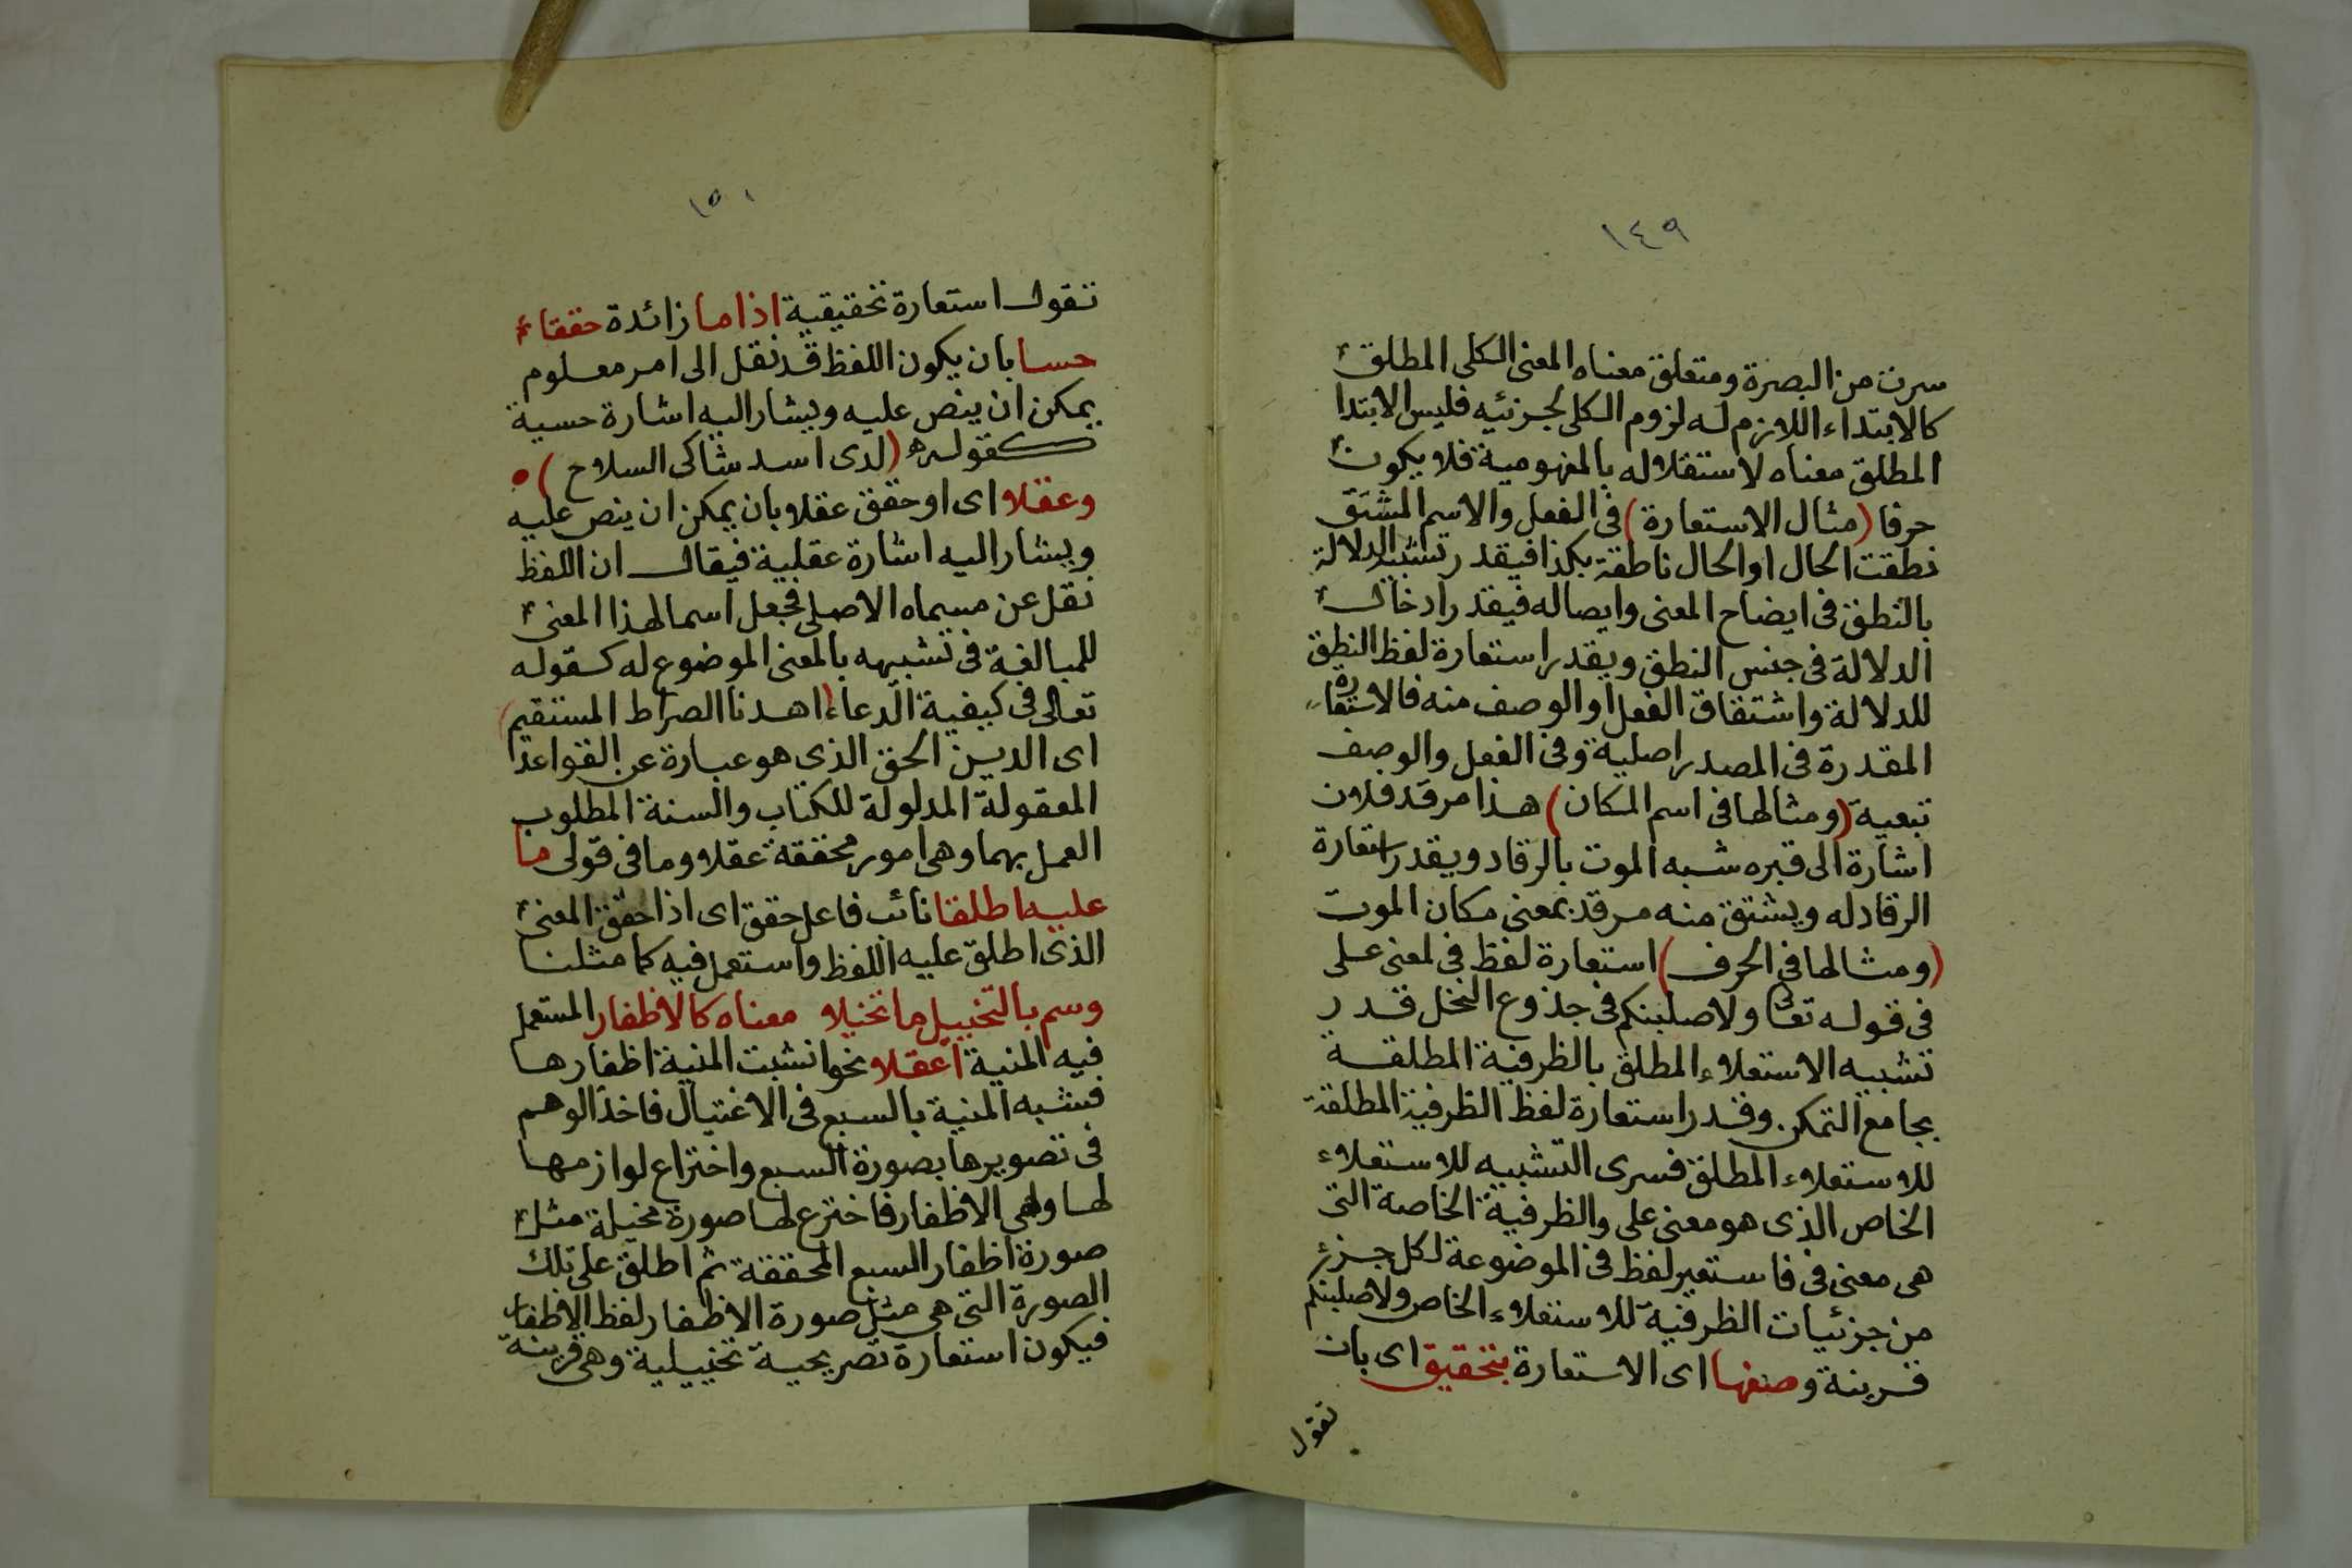 ١٤٩
سرت من البصرة ومتعلق معناه المعنى الكلى المطلق
كالابتداء اللازم له لزوم الكلى لجزئيه فليس الابتدا
المطلق معناه لاستقلاله بالمفهومية فلا يكون
حرفا (مثال الاستعارة) فى الفعل والاسم المشتق
نطقت الحال او الحال ناطقة بكذا فيقدر تشبيه الدلالة
بالنطق فى ايضاح المعنى وايصاله فيقدر ادخال
الدلالة فى جنس النطق ويقدر استعارة لفظ النطق
للدلالة واشتقاق الفعل او الوصف منه فالاستعارة
المقدرة فى المصدر اصلية وفى الفعل والوصف
تبعية (ومثالها فى اسم المكان) هذا مرقد فلان
اشارة الى قبره شبه الموت بالرقاد ويقدر استعارة
الرقاد له ويشتق منه مرقد بمعنى مكان الموت
(ومثالها فى الحرف) استعارة لفظ فى لمعنى على
فى قوله تعالى ولاصلبنكم فى جذوع النخل قدر
تشبيه الاستعلاء المطلق بالظرفية المطلقة
بجامع التمكن وقدر استعارة لفظ الظرفية المطلقة
للاستعلاء المطلق فسرى التشبيه للاستعلاء
الخاص الذى هو معنى على والظرفية الخاصة التى
هى معنى فى فاستعير لفظ فى الموضوعة لكل جزئ
من جزئيات الظرفية للاستعلاء الخاص ولاصلبنكم
قرينة وصفها اى الاستعارة بتحقيق اى بان
تقول
١٥٠
تقول استعارة تحقيقية اذا ما زائدة حققا
حسا بان يكون اللفظ قد نقل الى امر معلوم
يمكن ان ينص عليه ويشار اليه اشارة حسية
كقوله (لدى اسد شاكى السلاح)
وعقلا اى او حقق عقلا بان يمكن ان ينص عليه
ويشار اليه اشارة عقلية فيقال ان اللفظ
نقل عن مسماه الاصلى فجعل اسما لهذا المعنى
للمبالغة فى تشبيهه بالمعنى الموضوع له كقوله
تعالى فى كيفية الدعاء (اهدنا الصراط المستقيم)
اى الدين الحق الذى هو عبارة عن القواعد
المعقولة المدلولة للكتاب والسنة المطلوب
العمل بهما وهى امور محققة عقلا وما فى قولى ما
عليه اطلقا نائب فاعل حقق اى اذا حقق المعنى
الذى اطلق عليه اللفظ واستعمل فيه كما مثلنا
وسم بالتخييل ما تخيلا معناه كالاظفار المستعمل
فيه المنية اعقلا نحو انشبت المنية اظفارها
فشبه المنية بالسبع فى الاغتيال فاخذ الوهم
فى تصويرها بصورة السبع واختراع لوازمها
لها وهى الاظفار فاخترع لها صورة مخيلة مثل
صورة اظفار السبع المحققة ثم اطلق على تلك
الصورة التى هى مثل صورة الاظفار لفظ الاظفار
فيكون استعارة تصريحية تخييلية وهى قرينة